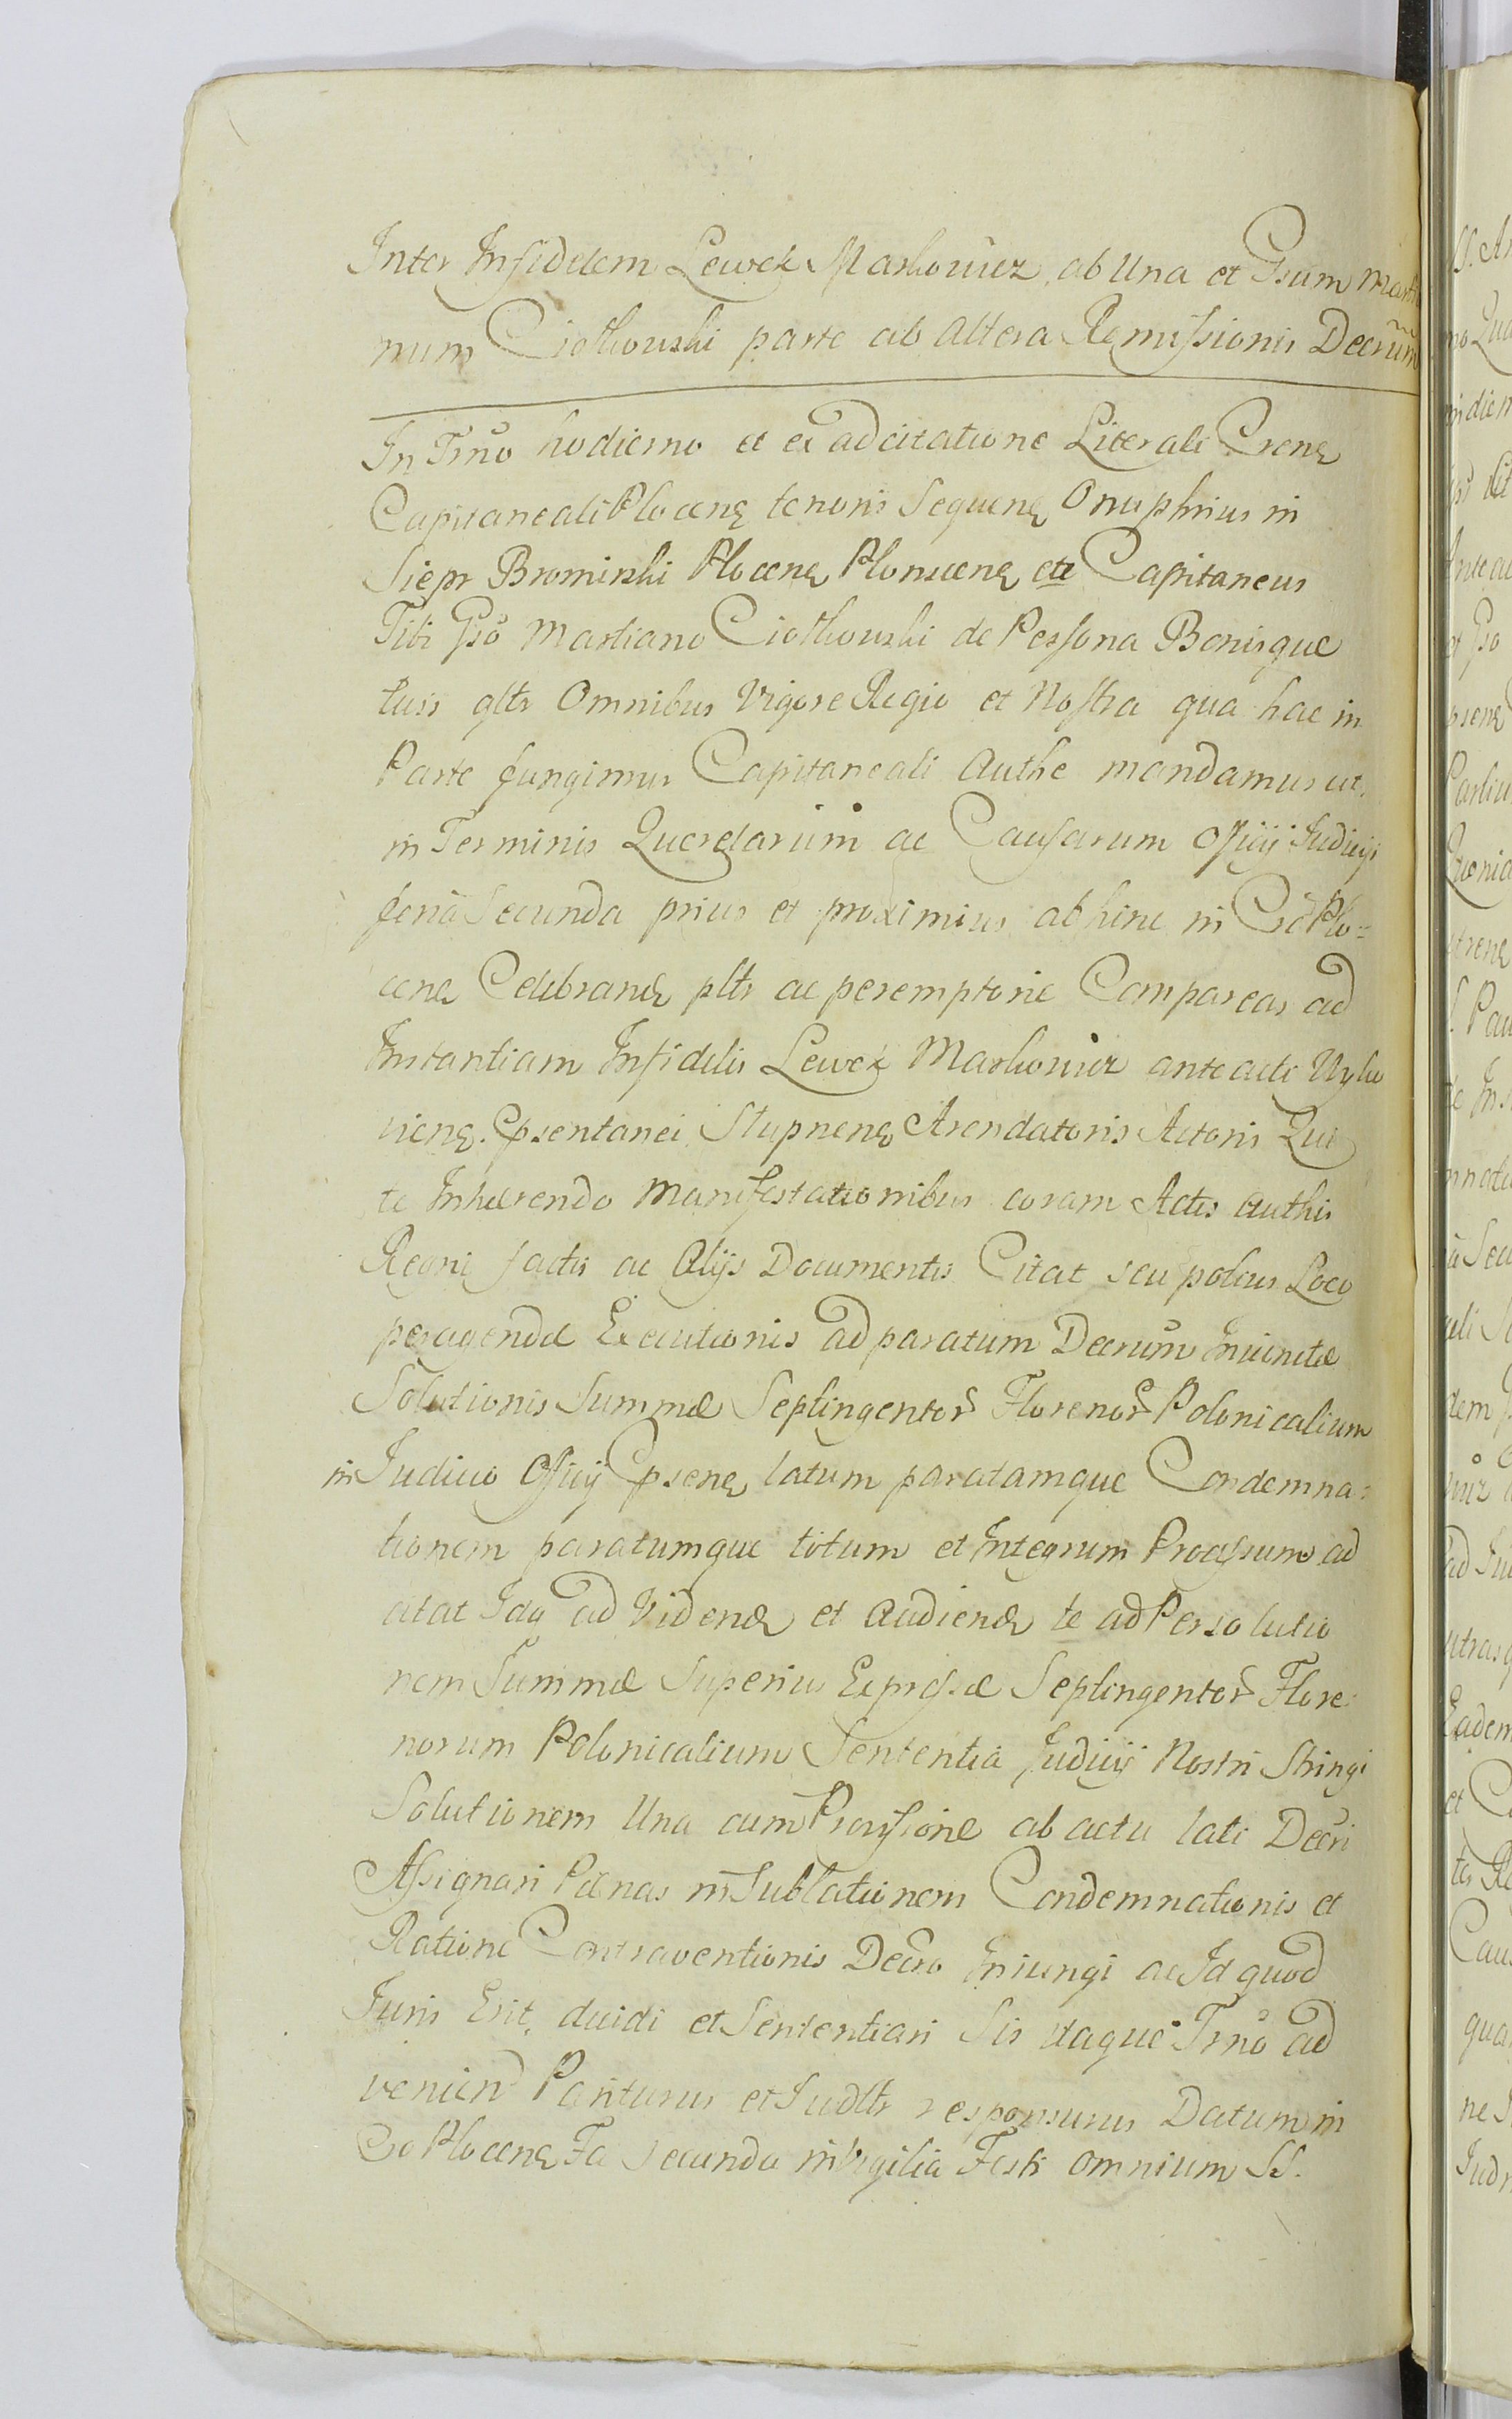 Inter Infidelem Lewek Markowicz ab Una et Gsum Marti
num Ciołkowski parte ab altera Remissionis Decrum
In Trno hodierno et ex adcitatione Literali Crens
Capitaneali Plocens tenoris Sequens Onuphrius in
Siepr Bromirski Plocens Plonscens etc Capitaneus
Tibi Gso Martiano Ciołkowski de Persona Bonisque
tuis gltr Omnibus Vigore Regio et Nostra qua hac in
Parte fungimur Capitaneali Authe mandamus ut
in Terminis Querelarum ac Causarum Officij Judicij
feria Secunda prius et proximius abhinc in Cro Plo=
cens Celebrand pltr ac peremptorie Compareas ad
Instantiam Infidelis Lewek Markowicz anteacti
viens. Psentanei Stupnens Arendatoris Actoris Qui
te Inhærendo Manifestationibus coram Actis Authis
Regni factis ac Alijs Documentis Citat seu potius Loco
peragendæ Executionis ad paratum Decrum Iniunctæ
Solutionis Summæ Septingentor Florenor Polonicalium
in Judicio Officij Psens latum paratamque Condemna=
tionem paratumque totum et Integrum Processum ad
citat Idq ad Vidend et Audiend te ad Persolutio
nem Summæ Superius Expressæ Septingentor Flore
norum Polonicalium Sententia Judicij Nostri Stringi
Solutionem Una cum Provisione ab actu lati Decri
Assignari Pænas in Sublationem Condemnationis et
Ratione Contraventionis Decro Iniungi ac Id quod
Juris Erit decidi et Sententiari Sis itaque Trno ad
venien Pariturus et Judltr responsurus Datum in
Co Plocens Fa Secunda in Vigilia Festi Omnium SS.